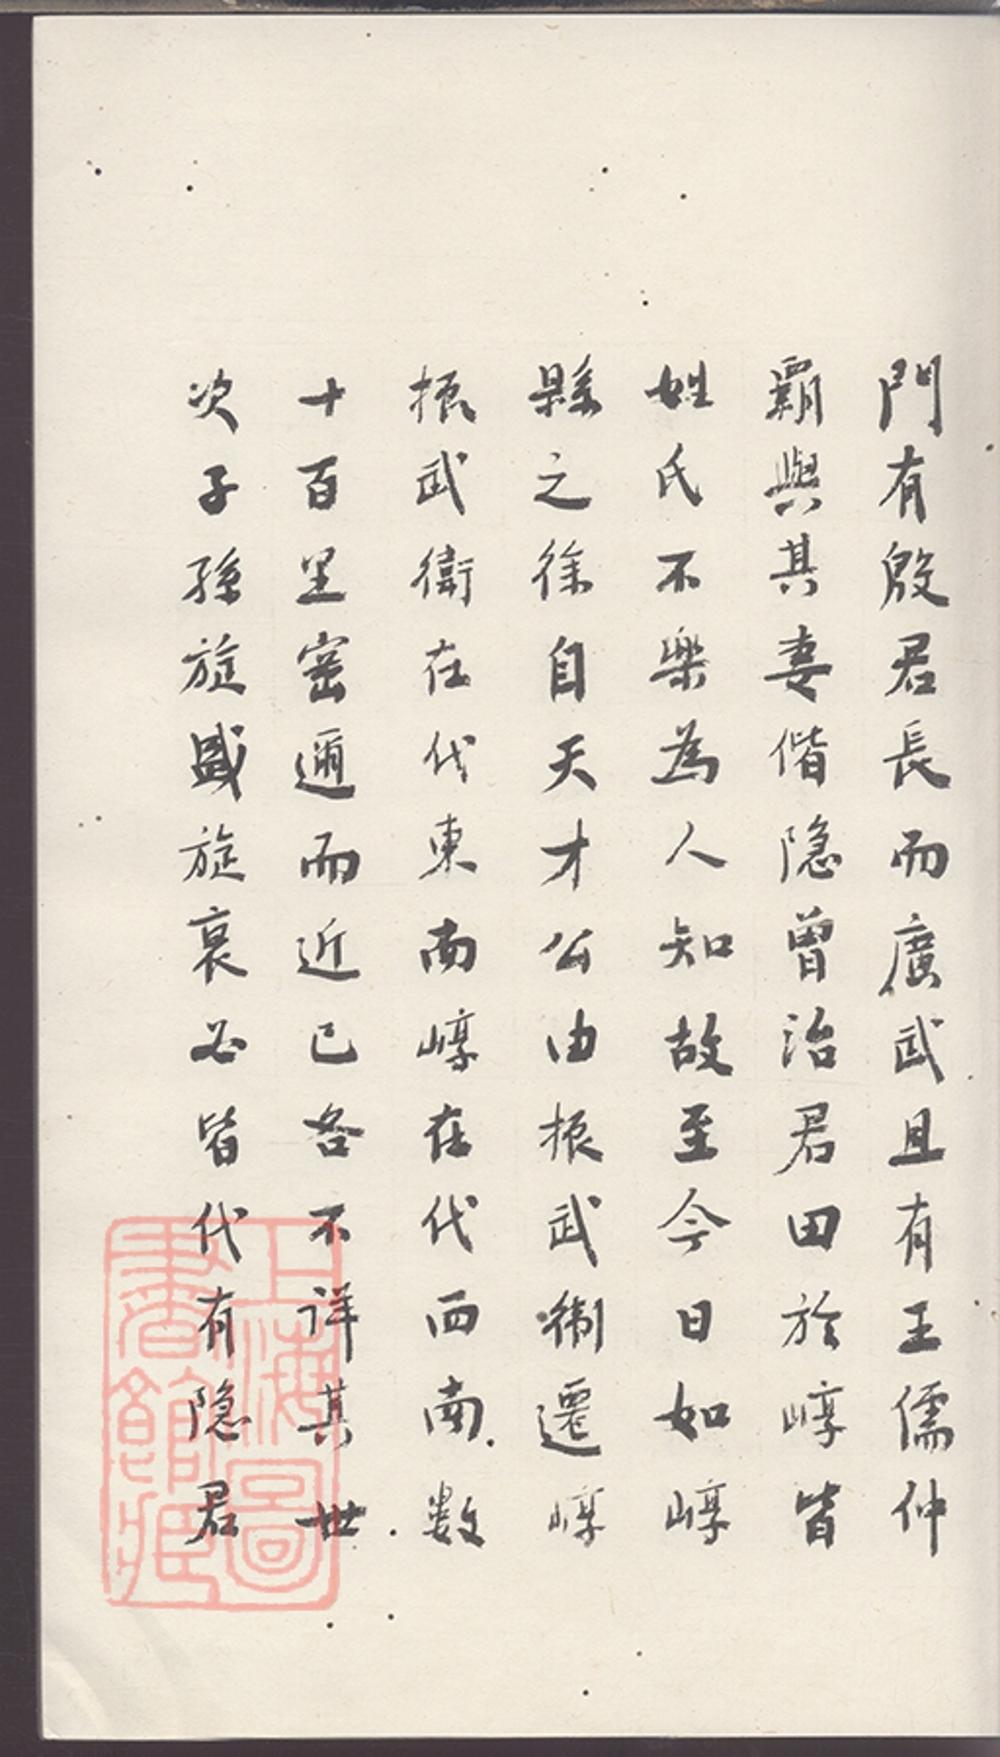 門有殷君長而廣武且有王儒仲
霸與其妻偕隐曾治君田於崞皆
姓氏不樂為人知故至今日如崞
縣之徐自天才公由振武衛遷崞
振武衛在代東南崞在代西南數
十百里密邇而近已各不詳其世
次子孫旋盛旋衰必皆代有隐君
上海圖
書館藏